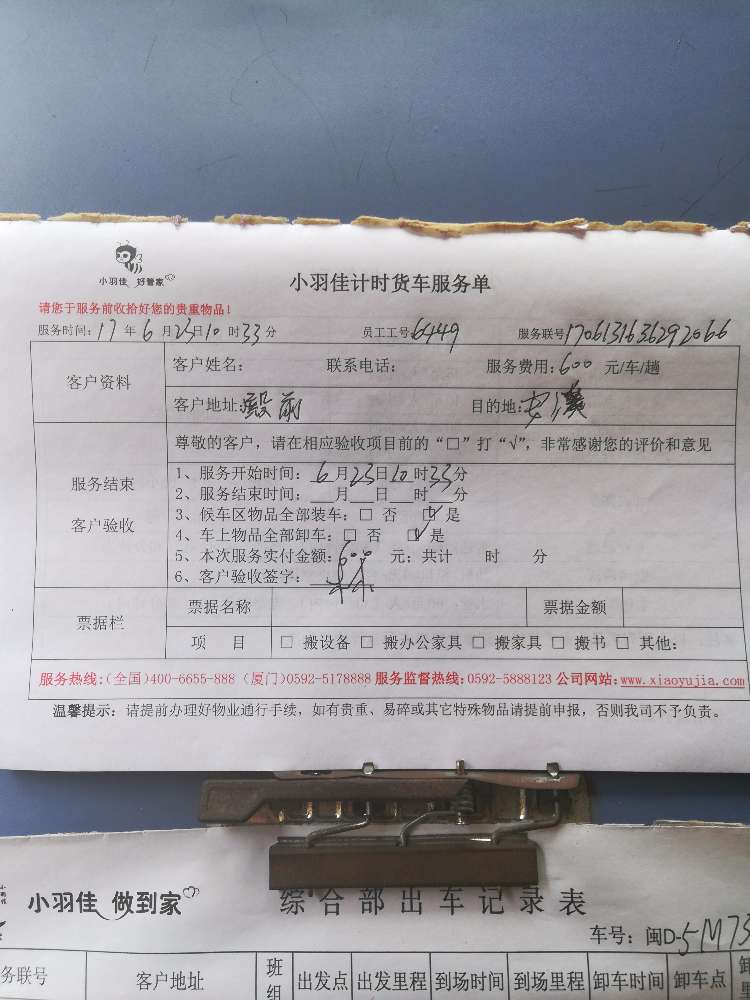 小羽佳 好管家
小羽佳计时货车服务单
请您于服务前收拾好您的贵重物品！
服务时间：17 年 6 月 23 日 10 时 33 分 员工工号：6449 服务联号 170613163629 2066
客户资料
客户姓名： 联系电话： 服务费用：600 元/车/趟
客户地址：殿前 目的地：安溪
服务结束
客户验收
尊敬的客户，请在相应验收项目前的“□”打“√”，非常感谢您的评价和意见
1、服务开始时间：6月23日10时33分
2、服务结束时间：__月__日__时__分
3、候车区物品全部装车：□ 否 ☑ 是
4、车上物品全部卸车：□ 否 ☑ 是
5、本次服务实付金额：600 元；共计 时 分
6、客户验收签字：
票据栏
票据名称 票据金额
项 目 □ 搬设备 □ 搬办公家具 □ 搬家具 □ 搬书 □ 其他：
服务热线：(全国)400-6655-888 (厦门)0592-5178888 服务监督热线：0592-5888123 公司网站：www.xiaoyujia.com
温馨提示：请提前办理好物业通行手续，如有贵重、易碎或其它特殊物品请提前申报，否则我司不予负责。
小羽佳 做到家
综合部出车记录表
车号：闽D-5M73
务联号 客户地址 班组 出发点 出发里程 到场时间 到场里程 卸车时间 卸车点